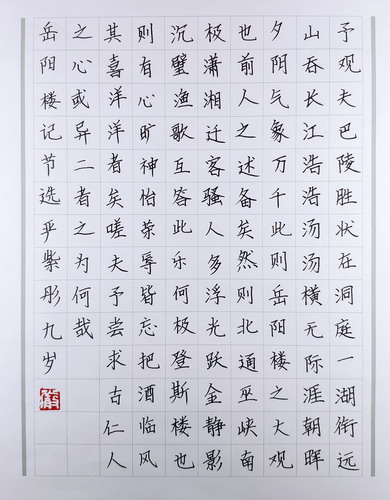 予观夫巴陵胜状在洞庭一湖衔远
山吞长江浩浩汤汤横无际涯朝晖
夕阴气象万千此则岳阳楼之大观
也前人之述备矣然则北通巫峡南
极潇湘迁客骚人多浮光跃金静影
沉璧渔歌互答此乐何极登斯楼也
则有心旷神怡荣辱皆忘把酒临风
其喜洋洋者矣嗟夫予尝求古仁人
之心或异二者之为何哉
岳阳楼记节选严紫彤九岁